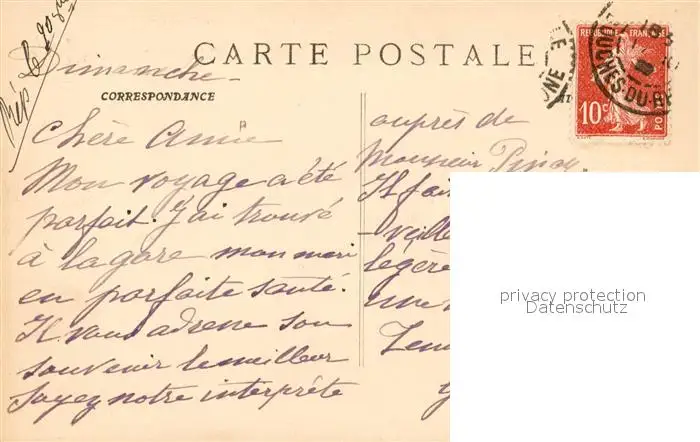 Rép le 20
CARTE POSTALE
Dimanche
CORRESPONDANCE
Chère Amie
Mon voyage a été
parfait. J'ai trouvé
à la gare mon mari
en parfaite santé.
Il vous adresse son
souvenir le meilleur
Soyez notre interprète
auprès de
Monsieur
Il fai
-veille
légère
une
REPUBLIQUE FRANÇAISE
10c
PO
BOUCHES-DU-R
privacy protection
Datenschutz